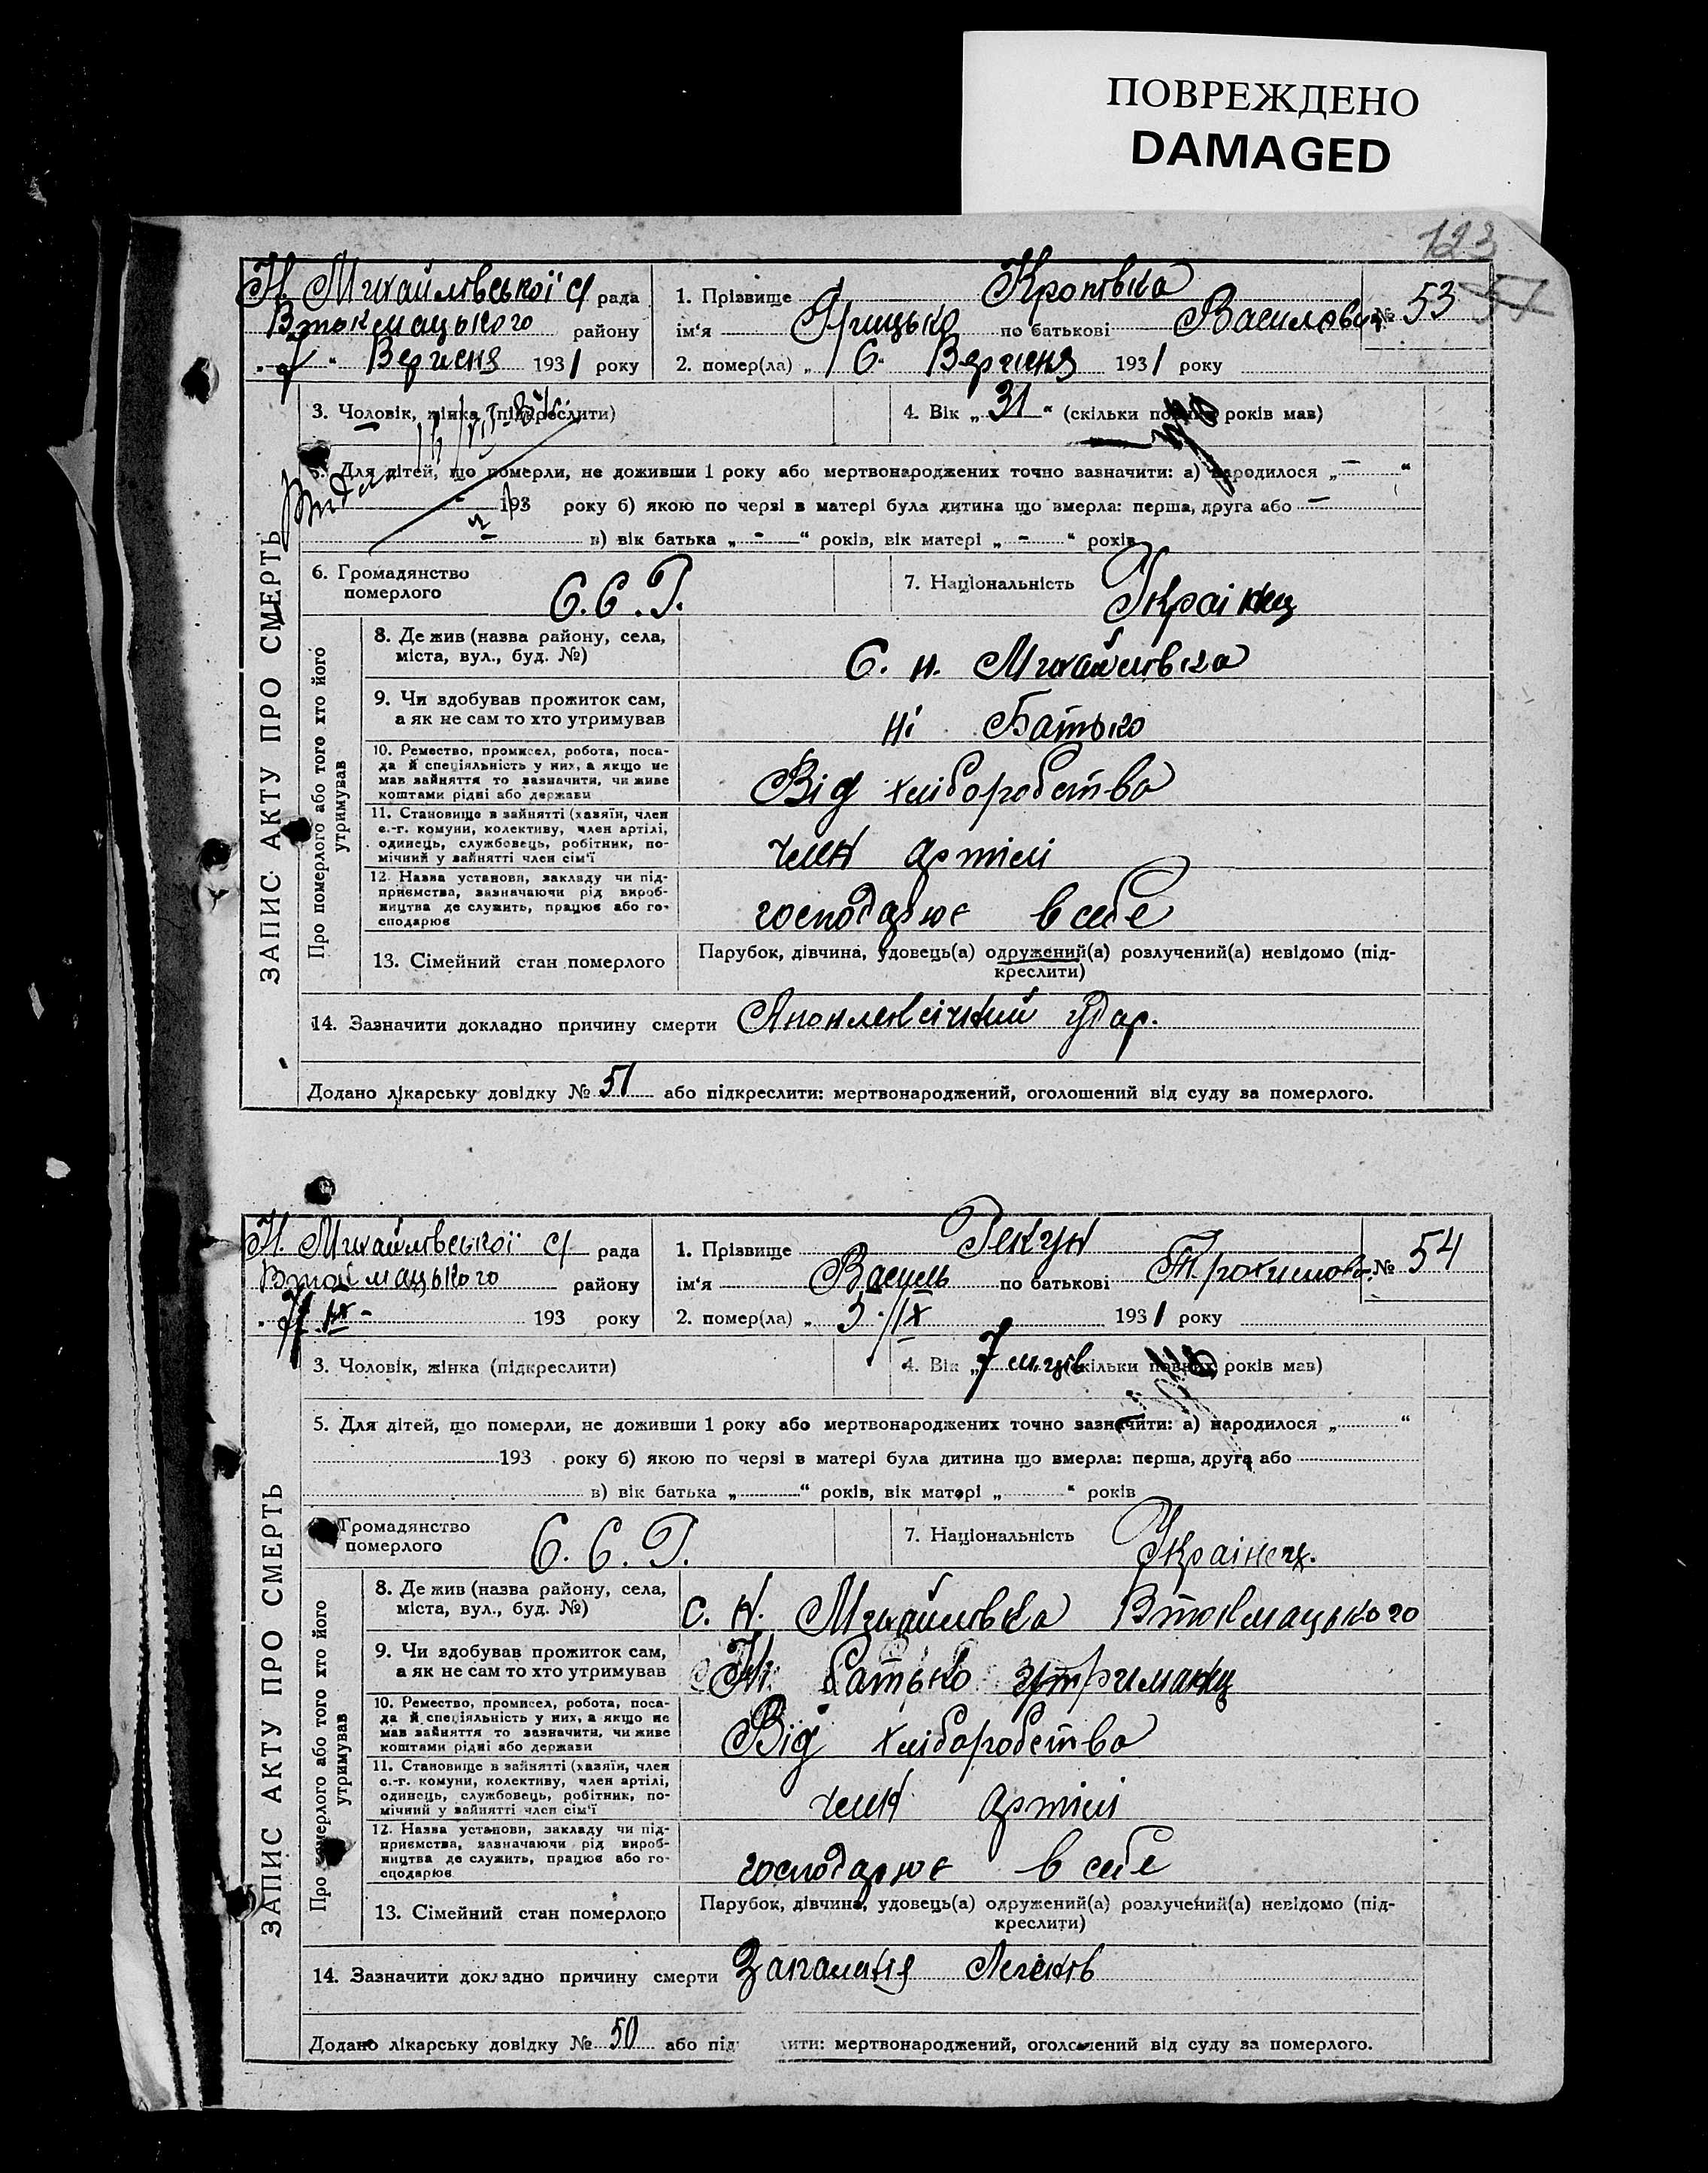 ПОВРЕЖДЕНО
DAMAGED
123
Н. Михайлівської с/ рада
Втокмацького району
„ 7 “ Вересня 1931 року
1. Прізвище Кропивка
ім'я Грицько по батькові Василович № 53 57
2. помер(ла) „ 6 “ Вересня 1931 року
3. Чоловік, жінка (підкреслити)
4. Вік „ 31 “ (скільки повних років мав)
5. Для дітей, що померли, не доживши 1 року або мертвонароджених точно зазначити: а) народилося „ – “
193 року б) якою по черзі в матері була дитина що вмерла: перша, друга або –
в) вік батька „ - “ років, вік матері „ - “ рохів
6. Громадянство
померлого
С.С.Р.
7. Національність Українец
ЗАПИС АКТУ ПРО СМЕРТЬ
Про померлого або того хто його
утримував
8. Де жив (назва району, села,
міста, вул., буд. №)
С. н. Михайлівка
9. Чи здобував прожиток сам,
а як не сам то хто утримував
ні Батько
10. Ремество, промисел, робота, поса-
да й спеціяльність у них, а якщо не
мав зайняття то зазначити, чи живе
коштами рідні або держави
Від хліборобства
11. Становище в зайнятті (хазяїн, член
с.-г. комуни, колективу, член артілі,
одинець, службовець, робітник, по-
мічний у зайнятті член сім'ї
член артілі
12. Назва установи, закладу чи під-
приємства, зазначаючи рід вироб-
ництва де служить, працює або го-
сподарює
господарює в себе
13. Сімейний стан померлого
Парубок, дівчина, удовець(а) одружений(а) розлучений(а) невідомо (під-
креслити)
14. Зазначити докладно причину смерти Апоплексічний удар.
Додано лікарську довідку № 51 або підкреслити: мертвонароджений, оголошений від суду за померлого.
Н. Михайлівської с/ рада
Втокмацького району
„ 7 IX - 193 року
1. Прізвище Рекун
ім'я Василь по батькові Трохимов. № 54
2. помер(ла) „ 5/IX 1931 року
3. Чоловік, жінка (підкреслити)
4. Вік „ 7 місяців (скільки повних років мав)
5. Для дітей, що померли, не доживши 1 року або мертвонароджених точно зазначити: а) народилося „ “
193 року б) якою по черзі в матері була дитина що вмерла: перша, друга або
в) вік батька „ “ років, вік матері „ “ років
Громадянство
померлого
С.С.Р.
7. Національність Українец.
ЗАПИС АКТУ ПРО СМЕРТЬ
Про померлого або того хто його
утримував
8. Де жив (назва району, села,
міста, вул., буд. №)
с. н. Михайлівка Втокмацького
9. Чи здобував прожиток сам,
а як не сам то хто утримував
Ні батько утриманец
10. Ремество, промисел, робота, поса-
да й спеціяльність у них, а якщо не
мав зайняття то зазначити, чи живе
коштами рідні або держави
Від хліборобства
11. Становище в зайнятті (хазяїн, член
с.-г. комуни, колективу, член артілі,
одинець, службовець, робітник, по-
мічний у зайнятті член сім'ї
член артілі
12. Назва установи, закладу чи під-
приємства, зазначаючи рід вироб-
ництва де служить, працює або го-
сподарює
господарює в себе
13. Сімейний стан померлого
Парубок, дівчина, удовець(а) одружений(а) розлучений(а) невідомо (під-
креслити)
14. Зазначити докладно причину смерти Запаленія Легенів
Додано лікарську довідку № 50 або під лити: мертвонароджений, оголошений від суду за померлого.